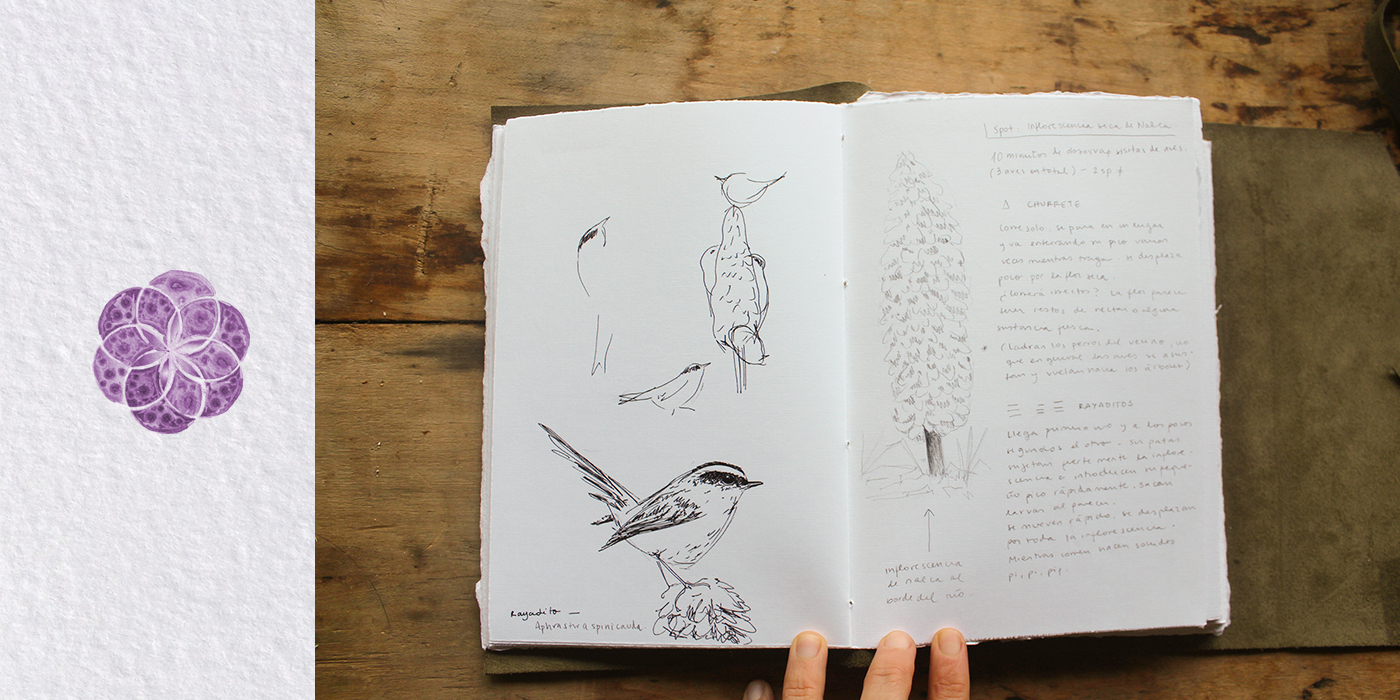 Rayadito —
Aphrastura spinicauda
Spot: Inflorescencia seca de Nalca
10 minutos de observar visitas de aves.
(3 aves en total) - 2 sp ≠
1 CHURRETE
Come solo. se para en un lugar
y va enterrando su pico varias
veces mientras traga. se desplaza
poco por la flor seca.
¿Comerá insectos? La flor parece
tener restos de nectar o alguna
sustancia
(Ladran los perros del vecino,
que en general las aves se asus-
tan y vuelan hacia los árboles)
RAYADITOS
Llega primero uno y a los pocos
segundos el otro. sus patas
sujetan fuertemente la inflore-
scencia e introducen su peque-
ño pico rápidamente. sacan
larvas al parecer.
se mueven rápido, se desplazan
por toda la inflorescencia.
Mientras comen hacen sonidos
pi, pi, pip.
inflorescencia
de nalca al
borde del río.